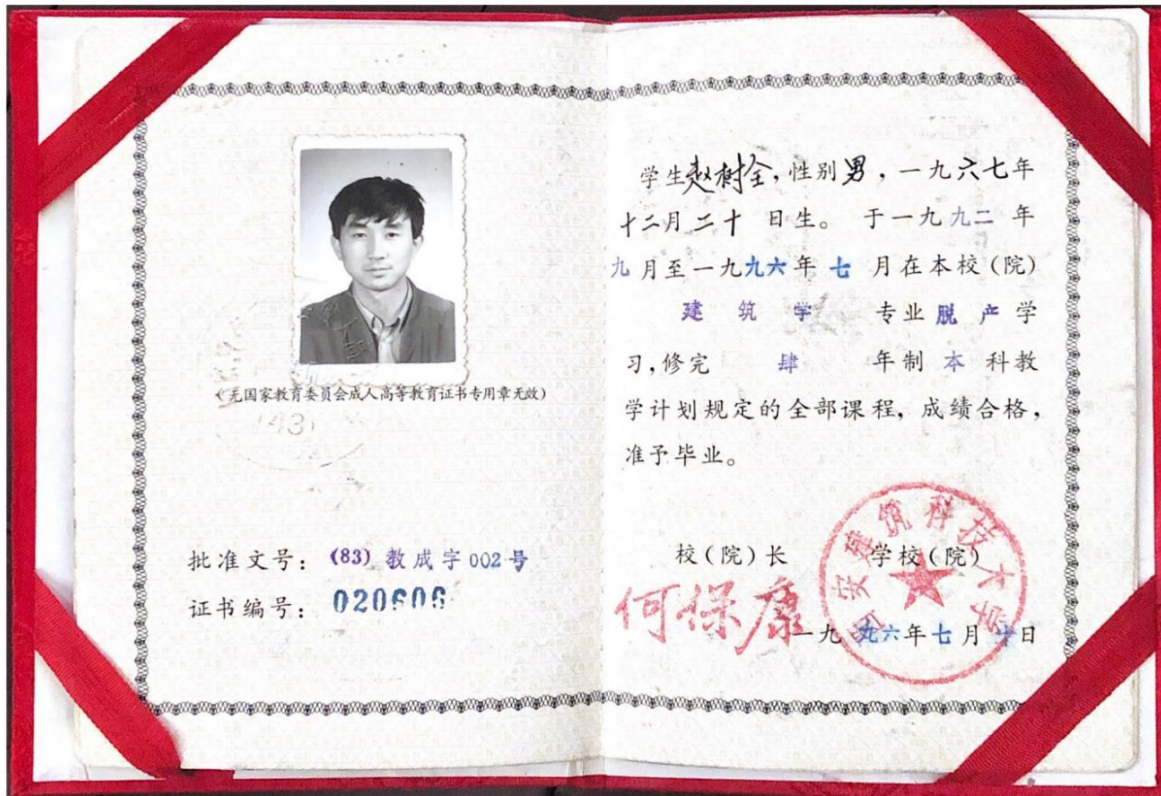 (无国家教育委员会成人高等教育证书专用章无效)
(43)
批准文号：(83)教成字002号
证书编号：020606
学生赵树全，性别男，一九六七年
十二月二十 日生。于一九九二年
九月至一九九六年七月在本校(院)
建筑学 专业脱产学
习，修完 肆 年制本科教
学计划规定的全部课程，成绩合格，
准予毕业。
校(院)长 学校(院)
何保康
西安建筑科技大学
一九九六年七月 日